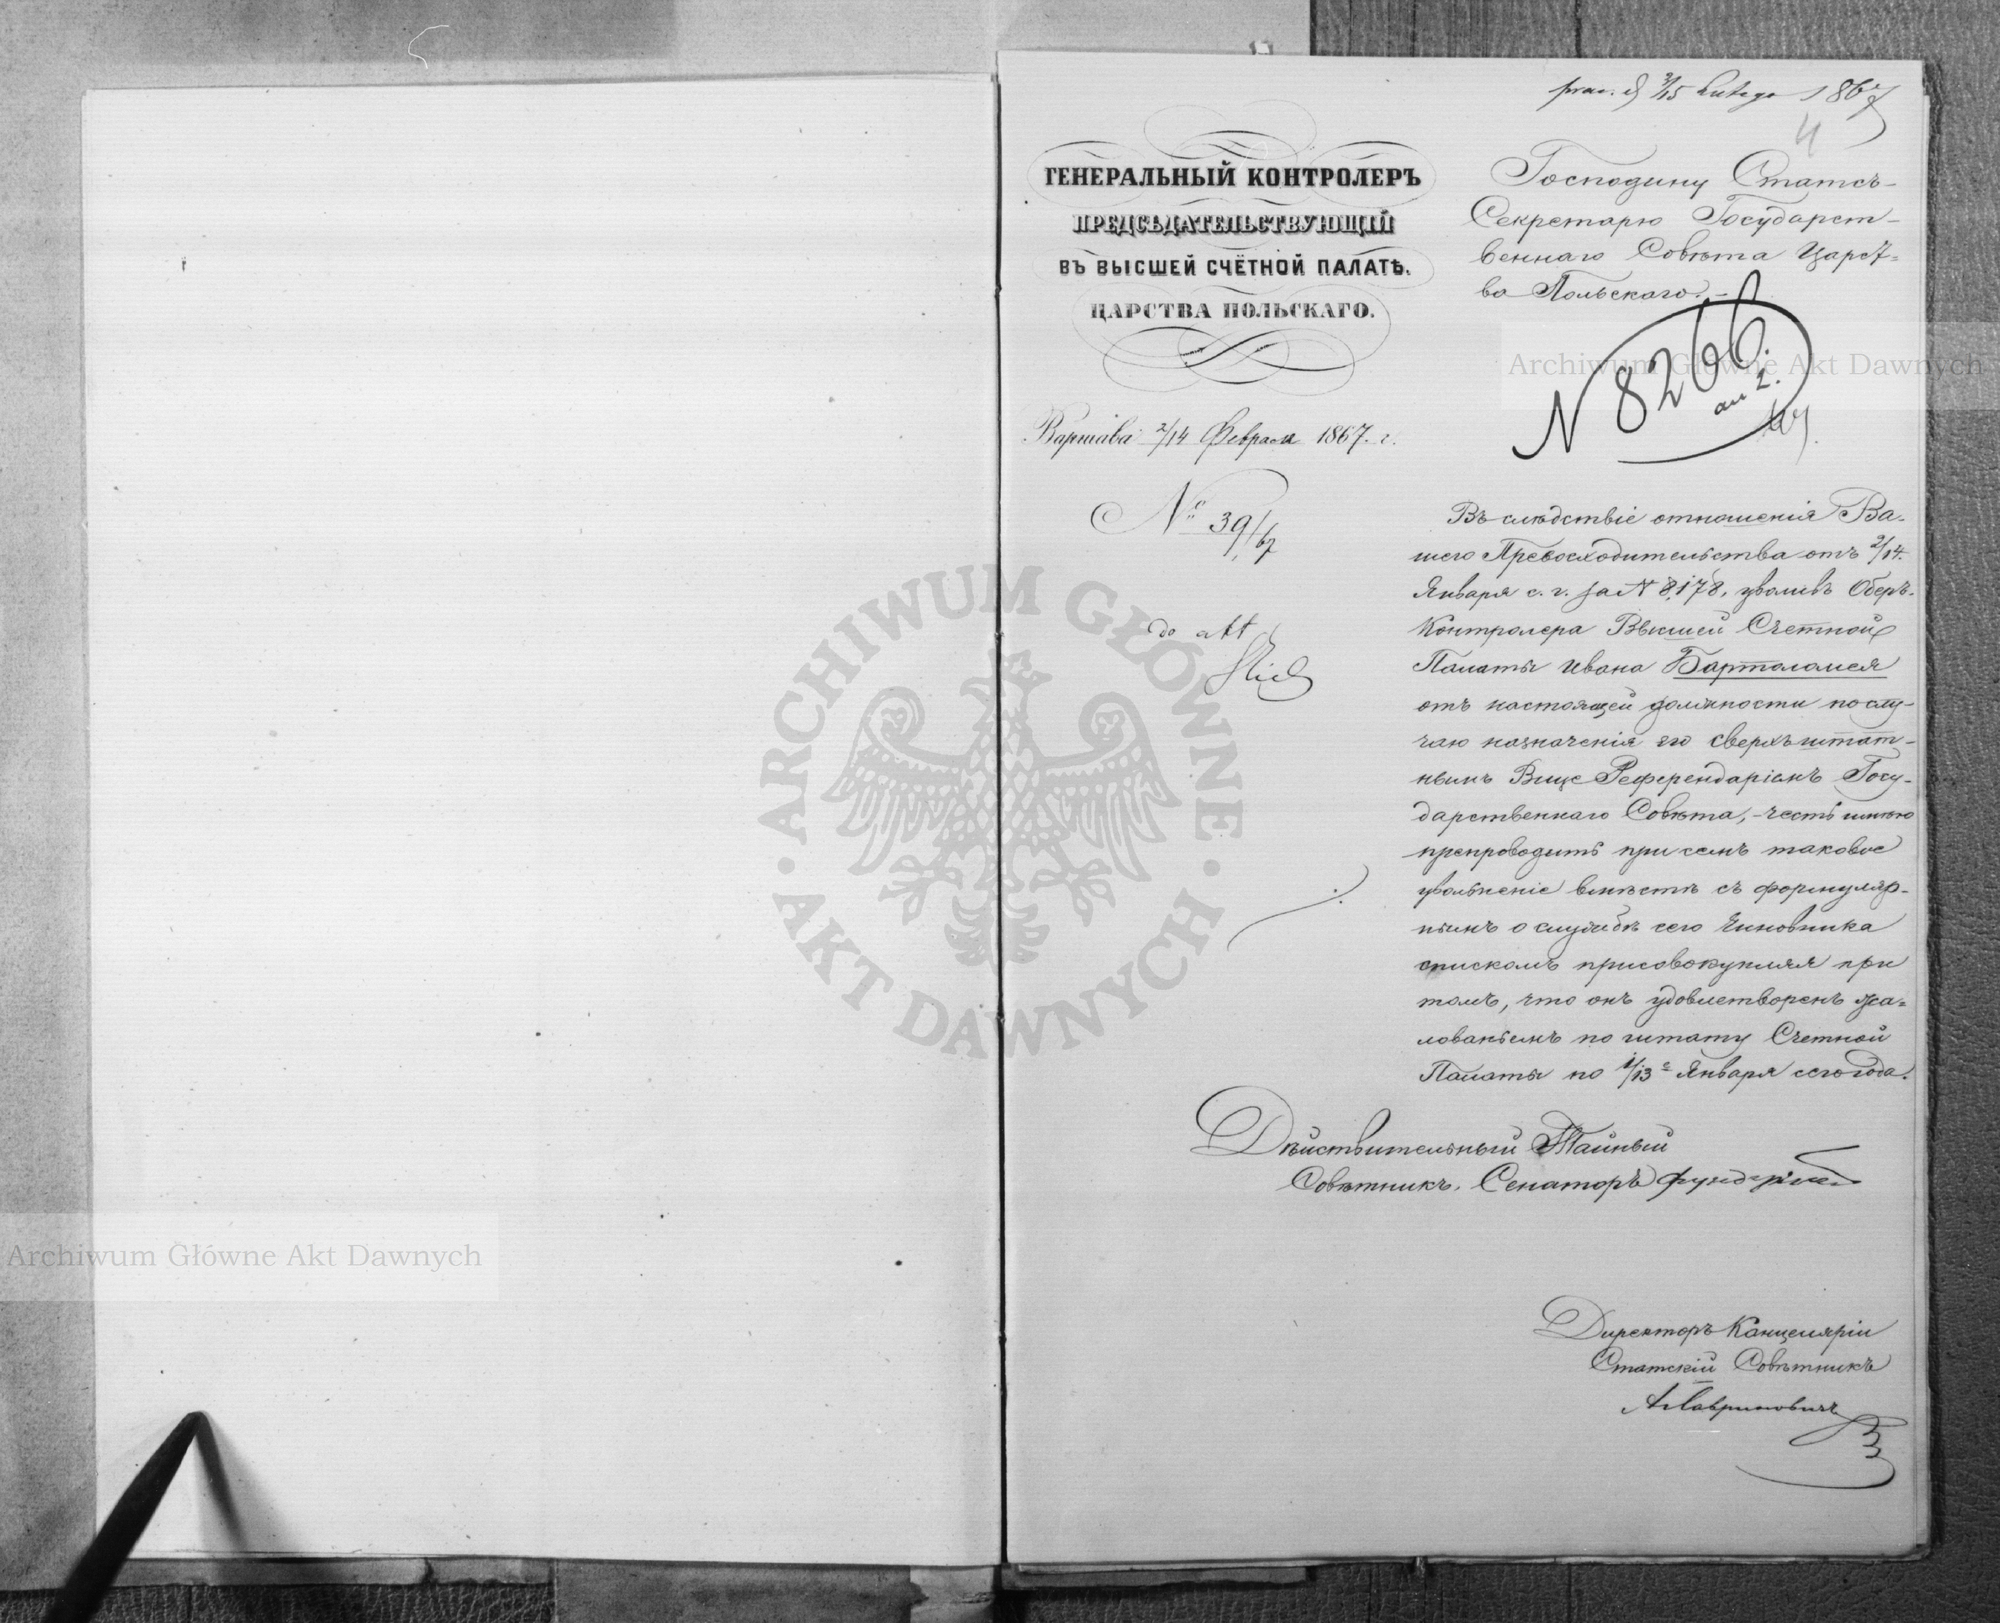 4
ГЕНЕРАЛЬНЫЙ КОНТРОЛЕРЪ
ПРЕДСѢДАТЕЛЬСТВУЮЩІЙ
ВЪ ВЫСШЕЙ СЧЁТНОЙ ПАЛАТѢ.
ЦАРСТВА ПОЛЬСКАГО.
Варшава 2/14 Февраля 1867. г.
№ 39/67
do akt
3/15 Lutego 1867
Господину Статсъ-
Секретарю Государст-
веннаго Совѣта Царст-
ва Польскаго.
N 8266.
Въ слѣдствіе отношенія Ва-
шего Превосходительства отъ 2/14.
Января с. г. за N 8,178, уволивъ Оберъ-
Контролера Высшей Счетной
Палаты Ивана Бартоломея
отъ настоящей должности по слу-
чаю назначенія его сверхъштат-
нымъ Вице Референдаріемъ Госу-
дарственнаго Совѣта, - честь имѣю
препроводить при семъ таковое
увольненіе вмѣстѣ съ формуляр-
нымъ о службѣ сего Чиновника
спискомъ присовокупляя при
томъ, что онъ удовлетворенъ жа-
лованьемъ по штату Счетной
Палаты по 1/13 е Января сего года.
Дѣйствительный Тайный
Совѣтникъ, Сенаторъ
Директоръ Канцеляріи
Статскій Совѣтникъ
А. Гавриновичъ
ARCHIWUM GŁÓWNE AKT DAWNYCH
Archiwum Główne Akt Dawnych
Archiwum Główne Akt Dawnych